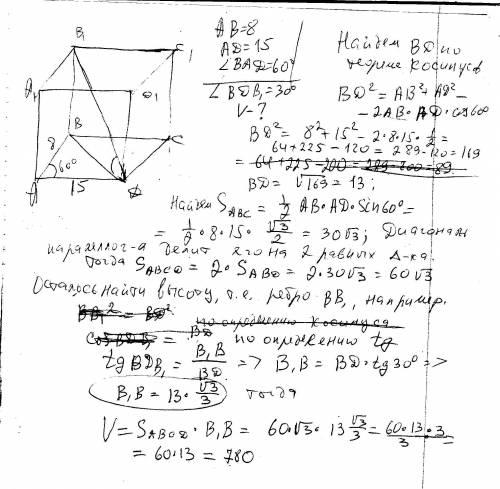 B₁
C₁
A₁
D₁
B
C
8
60°
A
15
D
AB=8
AD=15
∠BAD=60°
∠BDB₁=30°
V-?
Найдем BD по
теореме косинусов
BD²=AB²+AD²-
-2AB·AD·cos60
BD²= 8²+15²-2·8·15·1/2=
64+225-120=289-120=169
= 64+225-200=289-200=89
BD= √169=13;
Найдем S_ABC = 1/2 AB·AD·sin60°=
= 1/2·8·15·√3/2 = 30√3; Диагональ
параллелог-а делит его на 2 равных Δ-ка.
тогда S_ABCD=2·S_ABD=2·30√3=60√3
Осталось найти высоту, т.е. ребро BB₁, например.
по определению косинуса
по определению tg
tg BDB₁ = B₁B/BD => B₁B=BD·tg30° =>
B₁B=13·√3/3 тогда
V=S_ABCD·B₁B= 60√3·13√3/3=60·13·3/3=
= 60·13=780